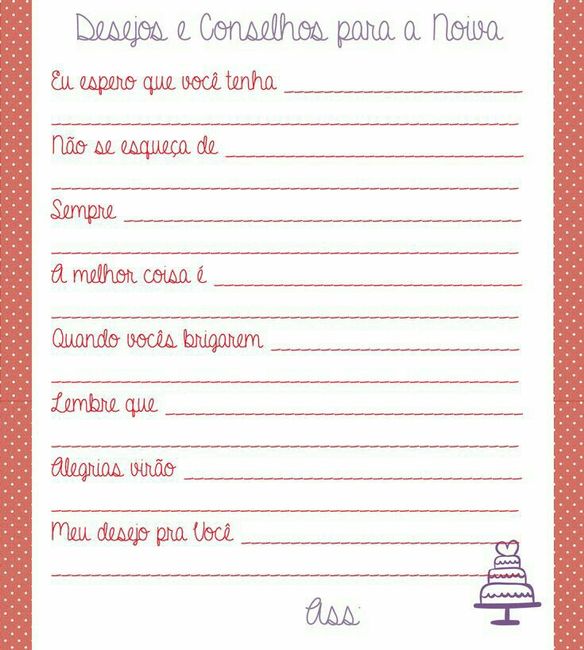 Desejos e Conselhos para a Noiva
Eu espero que você tenha
Não se esqueça de
Sempre
A melhor coisa é
Quando vocês brigarem
Lembre que
Alegrias virão
Meu desejo pra Você
Ass: